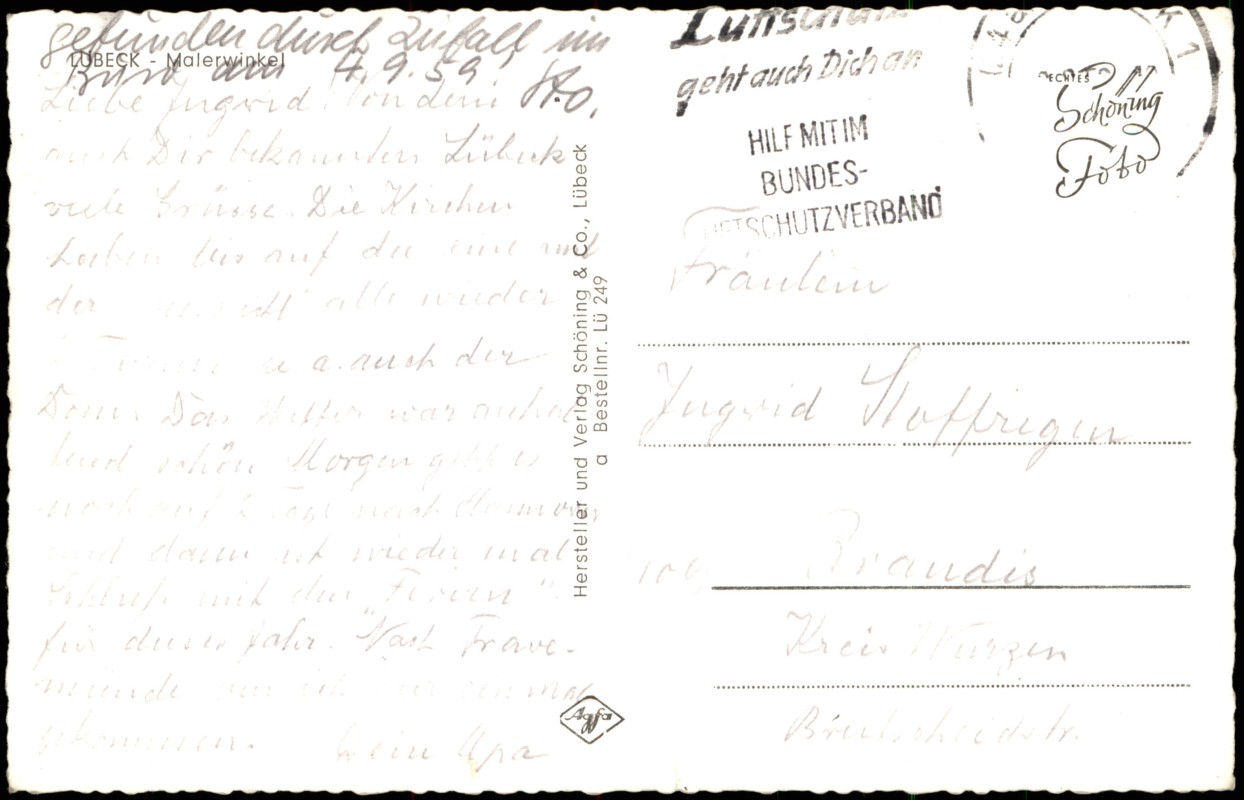 gefunden durch Zufall im
Büro am 4.9.59. Sto.
LÜBECK - Malerwinkel
Liebe Ingrid! Von dem
auch Dir bekannten Lübeck
viele Grüsse. Die Kirchen
haben bis auf die eine mit
der alle wieder
Türme u. a. auch der
Dom. Das Wetter war anhal
tend schön Morgen geht es
noch auf 2 Tage nach Hannover
und dann ist wieder mal
Schluß mit den „Ferien"
für dieses Jahr. Nach Trave-
münde bin ich nur einmal
gekommen. Dein Opa
Hersteller und Verlag Schöning & Co., Lübeck
a Bestellnr. Lü 249
Agfa
Luftschutz
geht auch Dich an
HILF MIT IM
BUNDES-
LUFTSCHUTZVERBAND
ECHTES
Schöning
Foto
Fräulein
Ingrid Stoffregen
Brandis
Kreis Wurzen
Breitscheidstr.